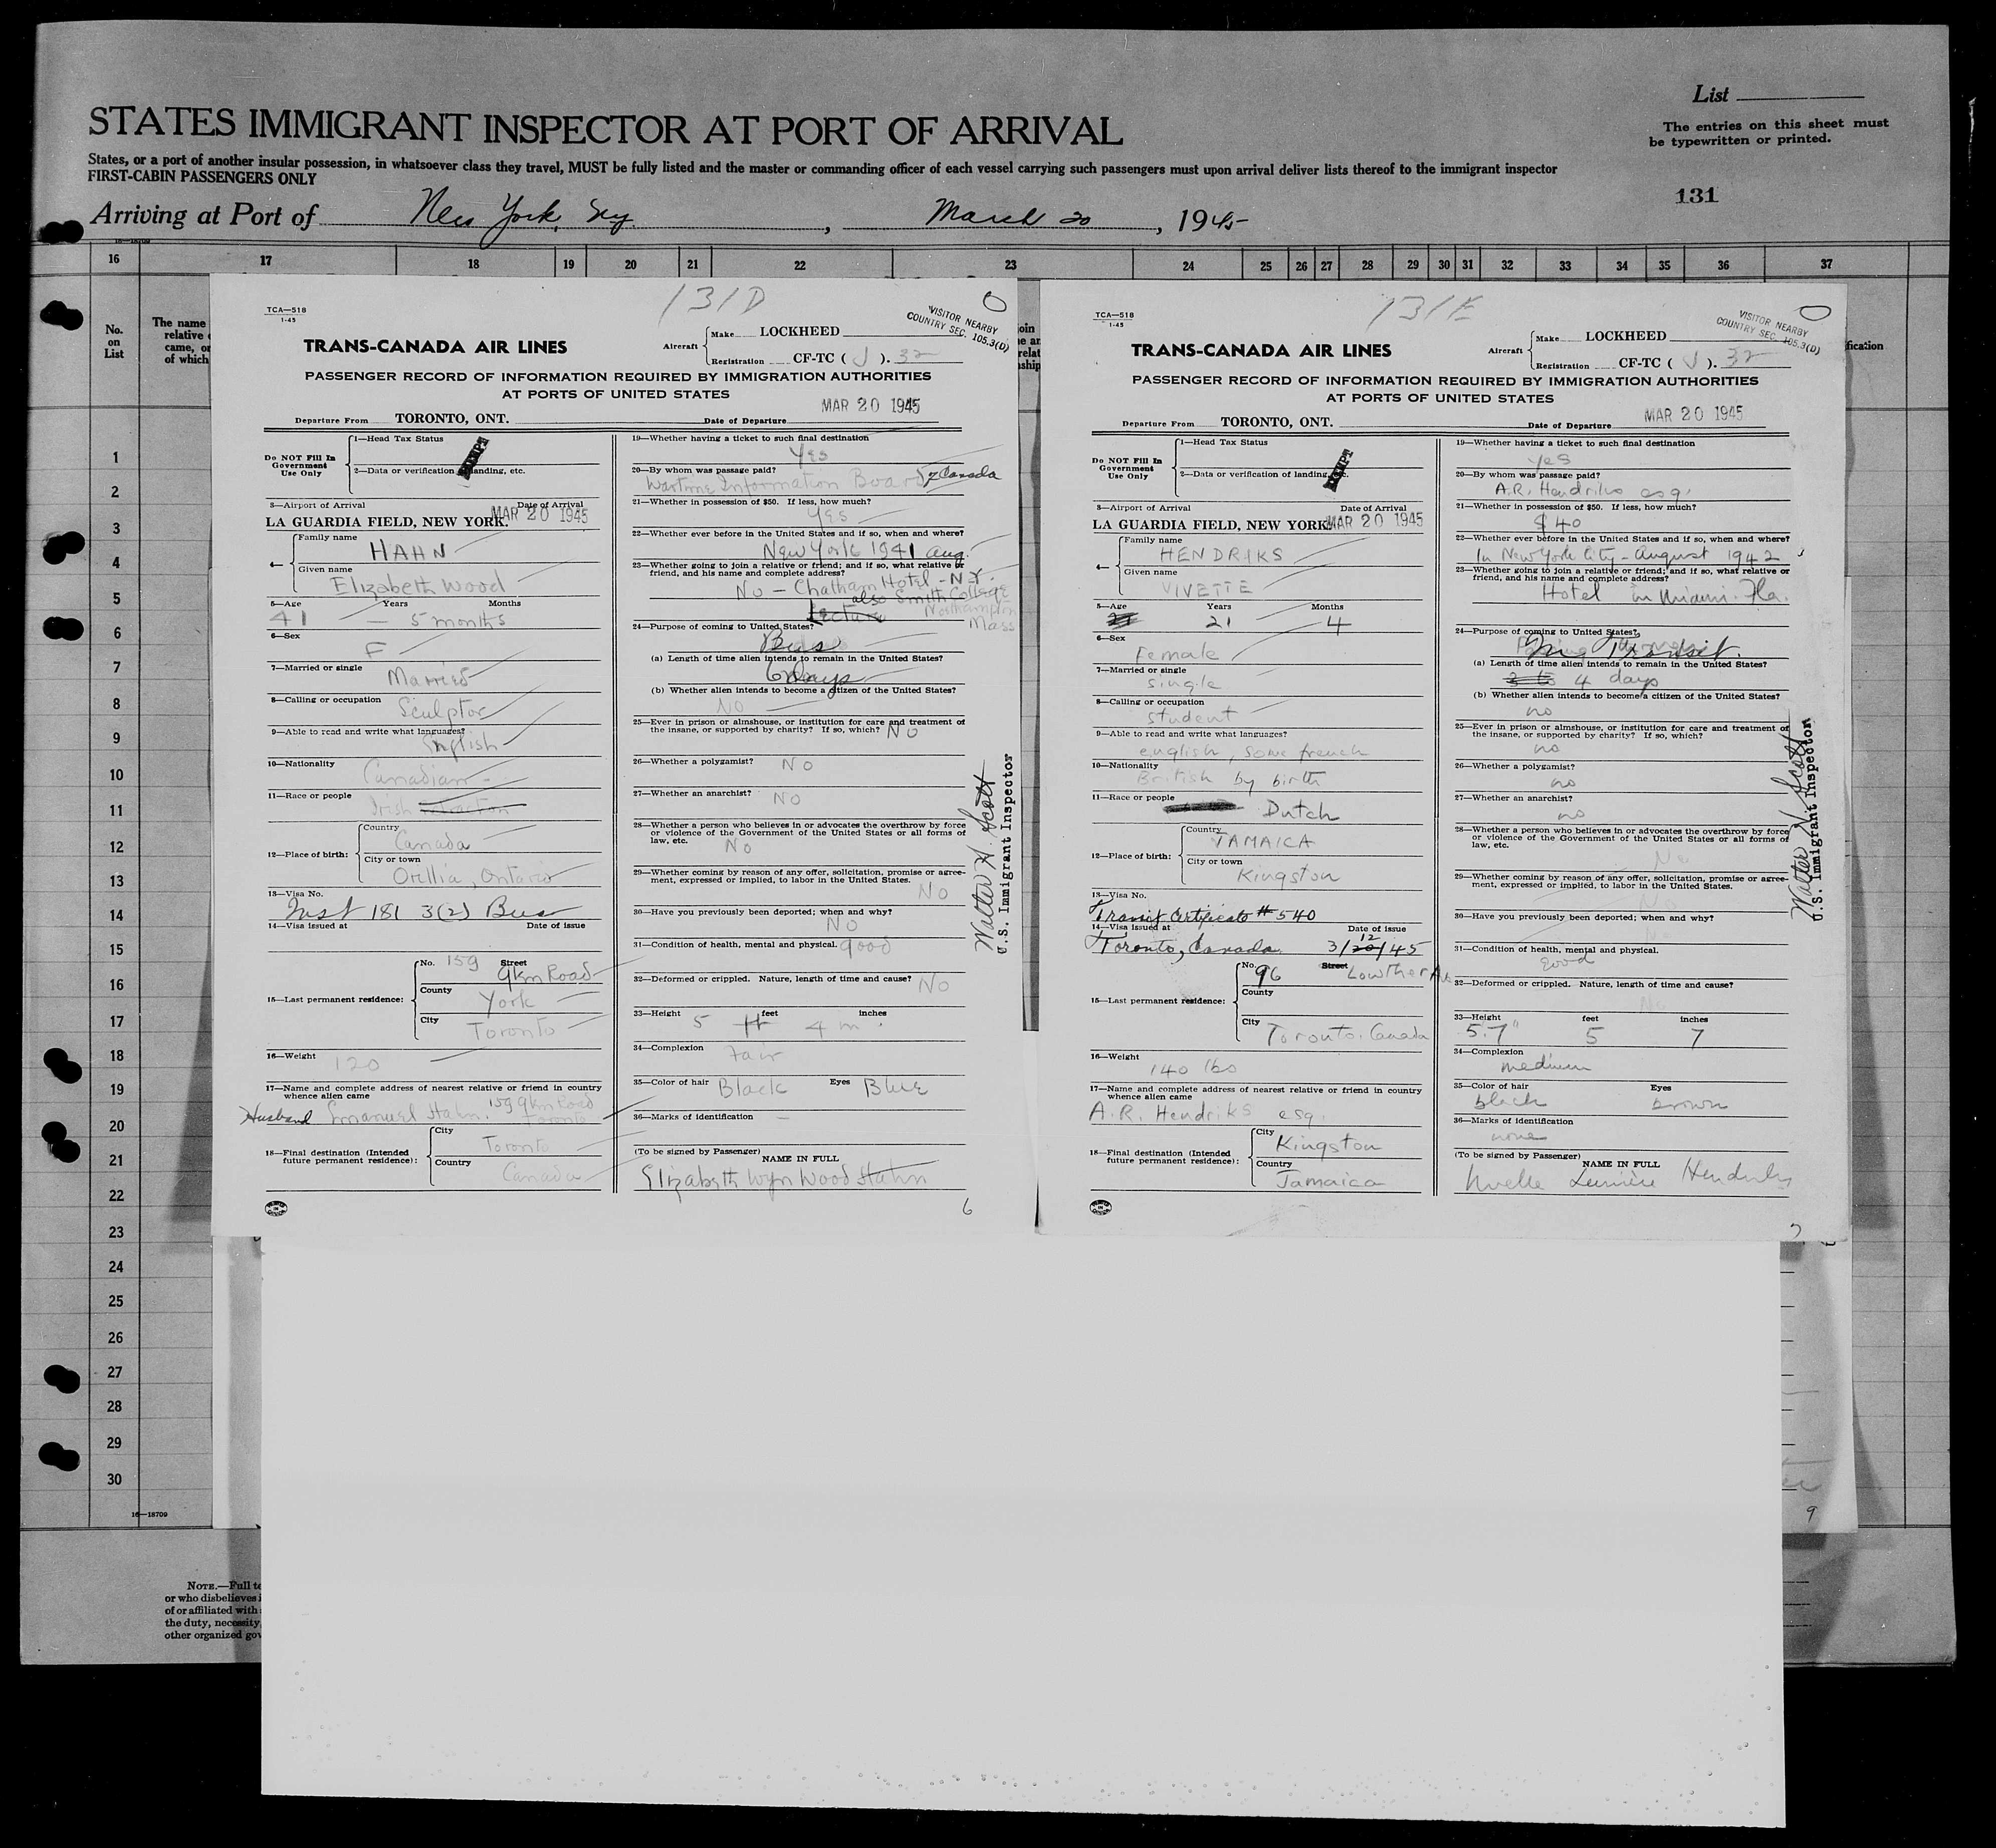 STATES IMMIGRANT INSPECTOR AT PORT OF ARRIVAL
List
The entries on this sheet must
be typewritten or printed.
States, or a port of another insular possession, in whatsoever class they travel, MUST be fully listed and the master or commanding officer of each vessel carrying such passengers must upon arrival deliver lists thereof to the immigrant inspector
FIRST-CABIN PASSENGERS ONLY
131
Arriving at Port of New York, Ny, March 20, 1945
16 17 18 19 20 21 22 23 24 25 26 27 28 29 30 31 32 33 34 35 36 37
No.
on
List
The name
relative
came, or
of which
1
2
3
4
5
6
7
8
9
10
11
12
13
14
15
16
17
18
19
20
21
22
23
24
25
26
27
28
29
30
16—18709
NOTE.—Full te
or who disbelieves i
of or affiliated with
the duty, necessity,
other organized gov
131D
TCA—518
1-45
VISITOR NEARBY
COUNTRY SEC. 105.3(D)
TRANS-CANADA AIR LINES
Aircraft
Make LOCKHEED
Registration CF-TC ( J ). 32
PASSENGER RECORD OF INFORMATION REQUIRED BY IMMIGRATION AUTHORITIES
AT PORTS OF UNITED STATES
MAR 20 1945
Departure From TORONTO, ONT. Date of Departure
Do NOT Fill In
Government
Use Only
1—Head Tax Status
2—Data or verification landing, etc.
3—Airport of Arrival Date of Arrival
LA GUARDIA FIELD, NEW YORK. MAR 20 1945
4—
Family name
HAHN
Given name
Elizabeth Wood
5—Age Years Months
41 — 5 months
6—Sex
F
7—Married or single
Married
8—Calling or occupation
Sculptor
9—Able to read and write what languages?
English
10—Nationality
Canadian
11—Race or people
Irish
12—Place of birth:
Country
Canada
City or town
Orillia, Ontario
13—Visa No.
Inst 181 3(2) Bus
14—Visa issued at Date of issue
15—Last permanent residence:
No. 159 Street Glen Road
County
York
City
Toronto
16—Weight
120
17—Name and complete address of nearest relative or friend in country
whence alien came
Husband Emanuel Hahn. 159 Glen Road
Toronto
18—Final destination (Intended
future permanent residence):
City
Toronto
Country
Canada
19—Whether having a ticket to such final destination
Yes
20—By whom was passage paid?
Wartime Information Board of Canada
21—Whether in possession of $50. If less, how much?
Yes
22—Whether ever before in the United States and if so, when and where?
New York 1941 Aug.
23—Whether going to join a relative or friend; and if so, what relative or
friend, and his name and complete address?
No — Chatham Hotel - N.Y.
also Smith College
Northampton
Mass
Lecture
24—Purpose of coming to United States?
Bus
(a) Length of time alien intends to remain in the United States?
6 Days
(b) Whether alien intends to become a citizen of the United States?
NO
25—Ever in prison or almshouse, or institution for care and treatment of
the insane, or supported by charity? If so, which? NO
26—Whether a polygamist? NO
27—Whether an anarchist? NO
28—Whether a person who believes in or advocates the overthrow by force
or violence of the Government of the United States or all forms of
law, etc. No
29—Whether coming by reason of any offer, solicitation, promise or agree-
ment, expressed or implied, to labor in the United States. NO
30—Have you previously been deported; when and why?
NO
31—Condition of health, mental and physical. good
32—Deformed or crippled. Nature, length of time and cause? NO
33—Height feet inches
5 ft 4 in.
34—Complexion
Fair
35—Color of hair Black Eyes Blue
36—Marks of identification —
(To be signed by Passenger) NAME IN FULL
Elizabeth Wyn Wood Hahn
6
Walter H. Scott
U.S. Immigrant Inspector
131E
TCA—518
1-45
VISITOR NEARBY
COUNTRY SEC. 105.3(D)
TRANS-CANADA AIR LINES
Aircraft
Make LOCKHEED
Registration CF-TC ( J ). 32
PASSENGER RECORD OF INFORMATION REQUIRED BY IMMIGRATION AUTHORITIES
AT PORTS OF UNITED STATES
MAR 20 1945
Departure From TORONTO, ONT. Date of Departure
Do NOT Fill In
Government
Use Only
1—Head Tax Status
2—Data or verification of landing, etc.
3—Airport of Arrival Date of Arrival
LA GUARDIA FIELD, NEW YORK. MAR 20 1945
4—
Family name
HENDRIKS
Given name
VIVETTE
5—Age Years Months
21 4
6—Sex
Female
7—Married or single
single
8—Calling or occupation
student
9—Able to read and write what languages?
english, some french
10—Nationality
British by birth
11—Race or people
Dutch
12—Place of birth:
Country
JAMAICA
City or town
Kingston
13—Visa No.
Transit Certificate # 540
14—Visa issued at Date of issue
Toronto, Canada 3/12/45
15—Last permanent residence:
No. 96 Street Lowther Ave
County
City
Toronto, Canada
16—Weight
140 lbs
17—Name and complete address of nearest relative or friend in country
whence alien came
A.R. Hendriks esq.
18—Final destination (Intended
future permanent residence):
City
Kingston
Country
Jamaica
19—Whether having a ticket to such final destination
yes
20—By whom was passage paid?
A.R. Hendriks esq.
21—Whether in possession of $50. If less, how much?
$40
22—Whether ever before in the United States and if so, when and where?
In New York City - August 1942
23—Whether going to join a relative or friend; and if so, what relative or
friend, and his name and complete address?
Hotel in Miami. Fla.
24—Purpose of coming to United States?
In Transit.
(a) Length of time alien intends to remain in the United States?
3 to 4 days
(b) Whether alien intends to become a citizen of the United States?
no
25—Ever in prison or almshouse, or institution for care and treatment of
the insane, or supported by charity? If so, which?
no
26—Whether a polygamist?
no
27—Whether an anarchist?
no
28—Whether a person who believes in or advocates the overthrow by force
or violence of the Government of the United States or all forms of
law, etc.
No
29—Whether coming by reason of any offer, solicitation, promise or agree-
ment, expressed or implied, to labor in the United States.
No
30—Have you previously been deported; when and why?
No
31—Condition of health, mental and physical.
good
32—Deformed or crippled. Nature, length of time and cause?
No
33—Height feet inches
5.7" 5 7
34—Complexion
medium
35—Color of hair Eyes
black brown
36—Marks of identification
none
(To be signed by Passenger) NAME IN FULL
Hendriks
7
Walter H. Scott
U.S. Immigrant Inspector
9